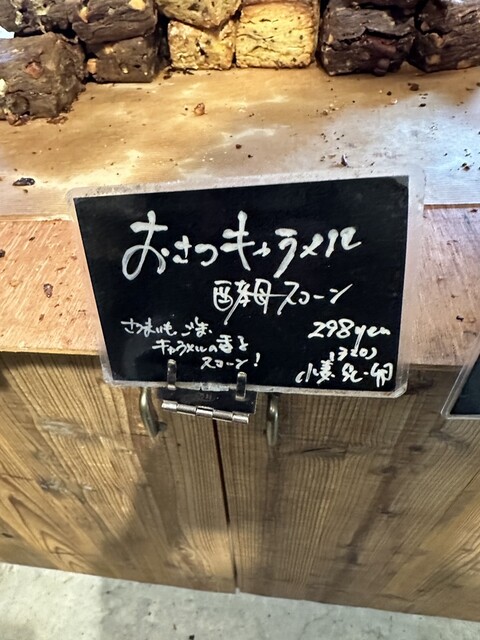 おさつキャラメル
酵母スコーン
さつまいも、ごま、
キャラメルの香る
スコーン!
298yen
(320)
小麦・乳・卵